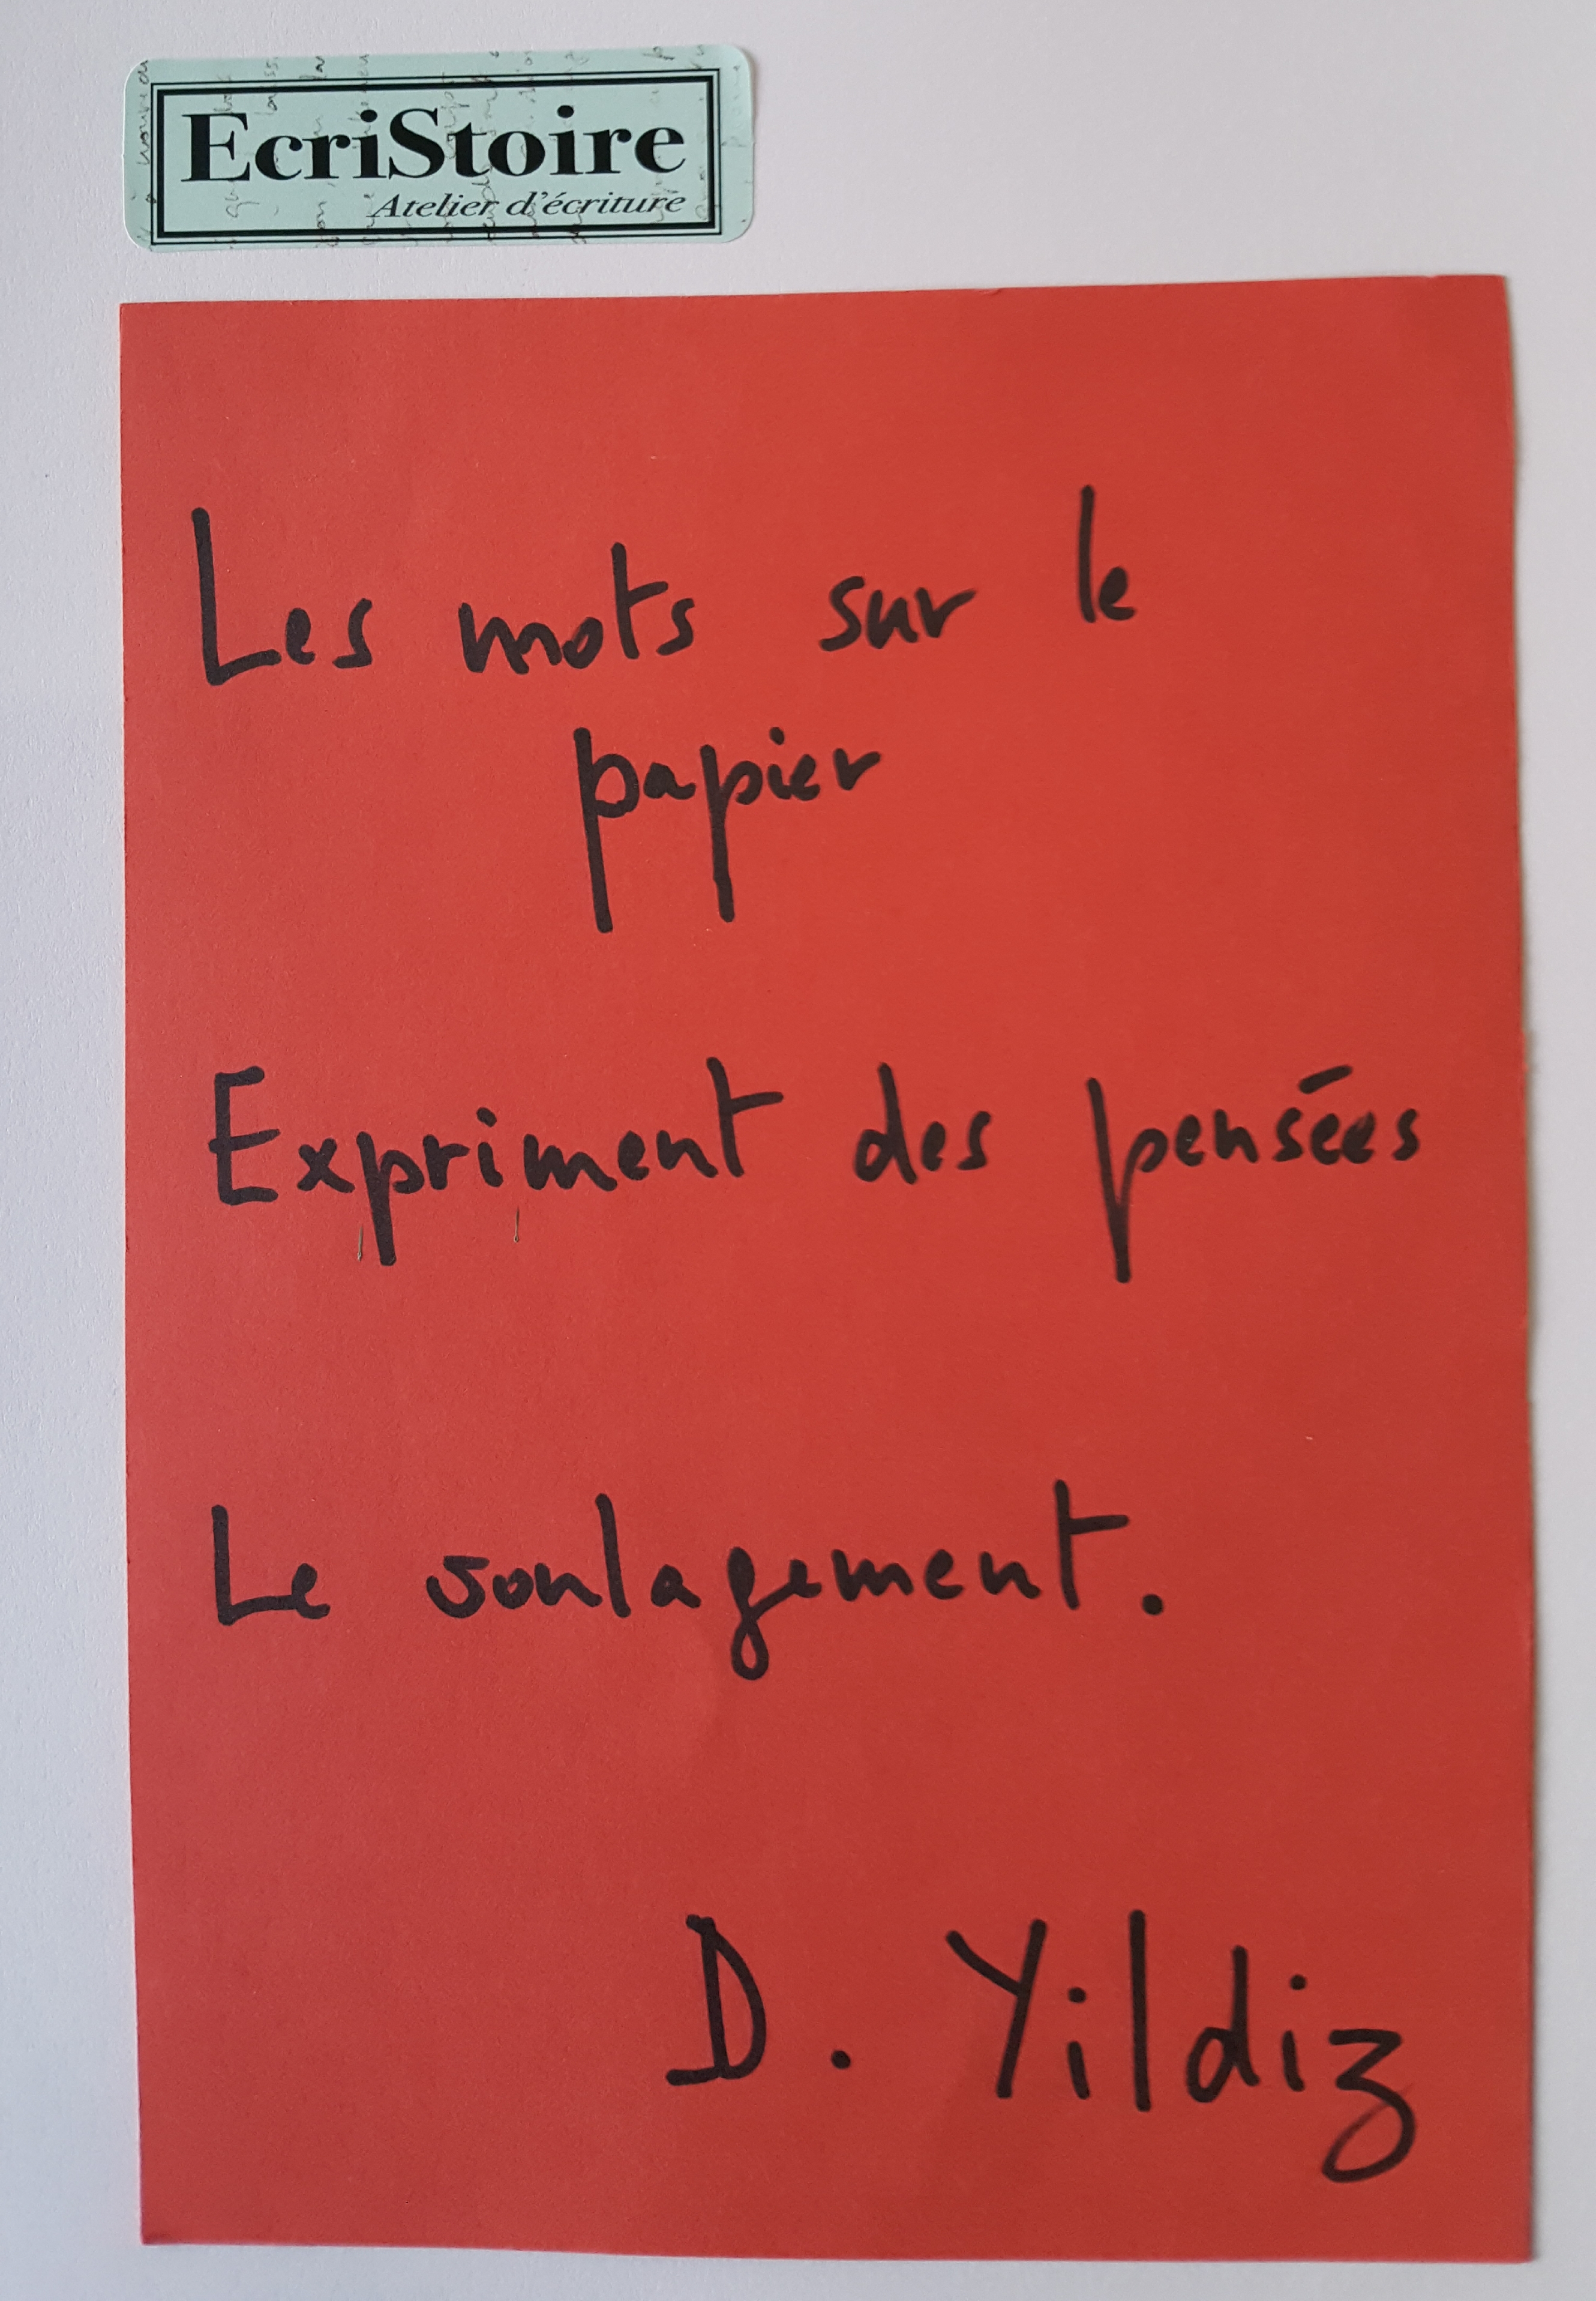 EcriStoire
Atelier d'écriture
Les mots sur le
papier
Expriment des pensées
Le soulagement.
D. Yildiz